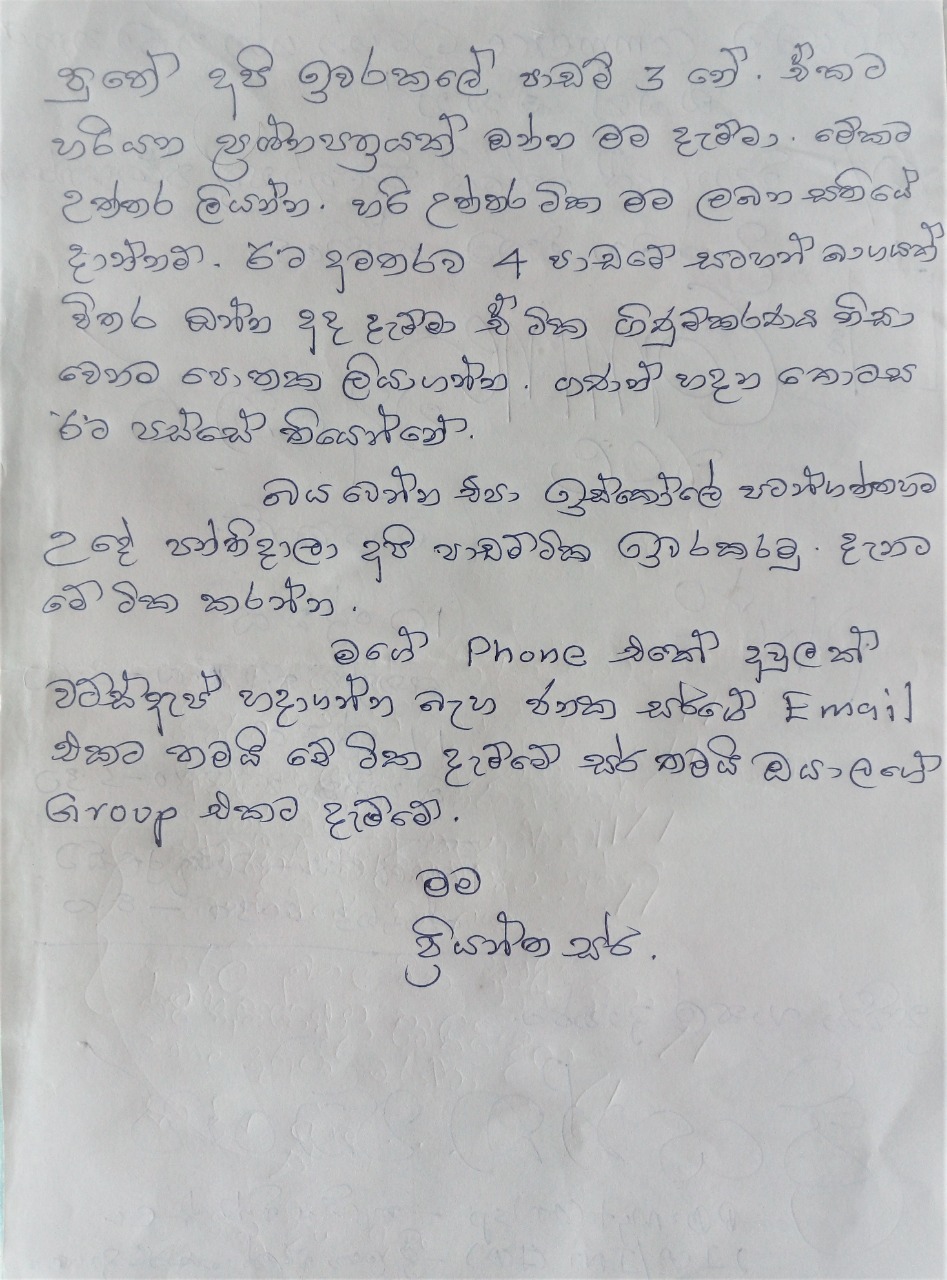 පුතේ අපි ඉවරකලේ පාඩම් 3 නේ. ඒකට
හරියන ප්‍රශ්නපත්‍රයක් ඔන්න මම දැම්මා. මේකට
උත්තර ලියන්න. හරි උත්තර ටික මම ලබන සතියේ
දාන්නම්. ඊට අමතරව 4 පාඩමේ සටහන් භාගයක්
විතර ඔන්න අද දැම්මා ඒ ටික ගිණුම්කරණය නිසා
වෙනම පොතක ලියාගන්න. ගණන් හදන කොටස
ඊට පස්සේ තියෙන්නේ.
බය වෙන්න එපා ඉස්කෝලේ පටන්ගත්තහම
උදේ පන්තිදාලා අපි පාඩම්ටික ඉවරකරමු. දැනට
මේ ටික කරන්න.
මගේ Phone එකේ අවුලක්
වට්ස්ඇප් හදාගන්න බැහැ ජනක සර්ගේ Email
එකට තමයි මේ ටික දැම්මේ සර් තමයි ඔයාලගේ
Group එකට දැම්මේ.
මම
ප්‍රියන්ත සර්.